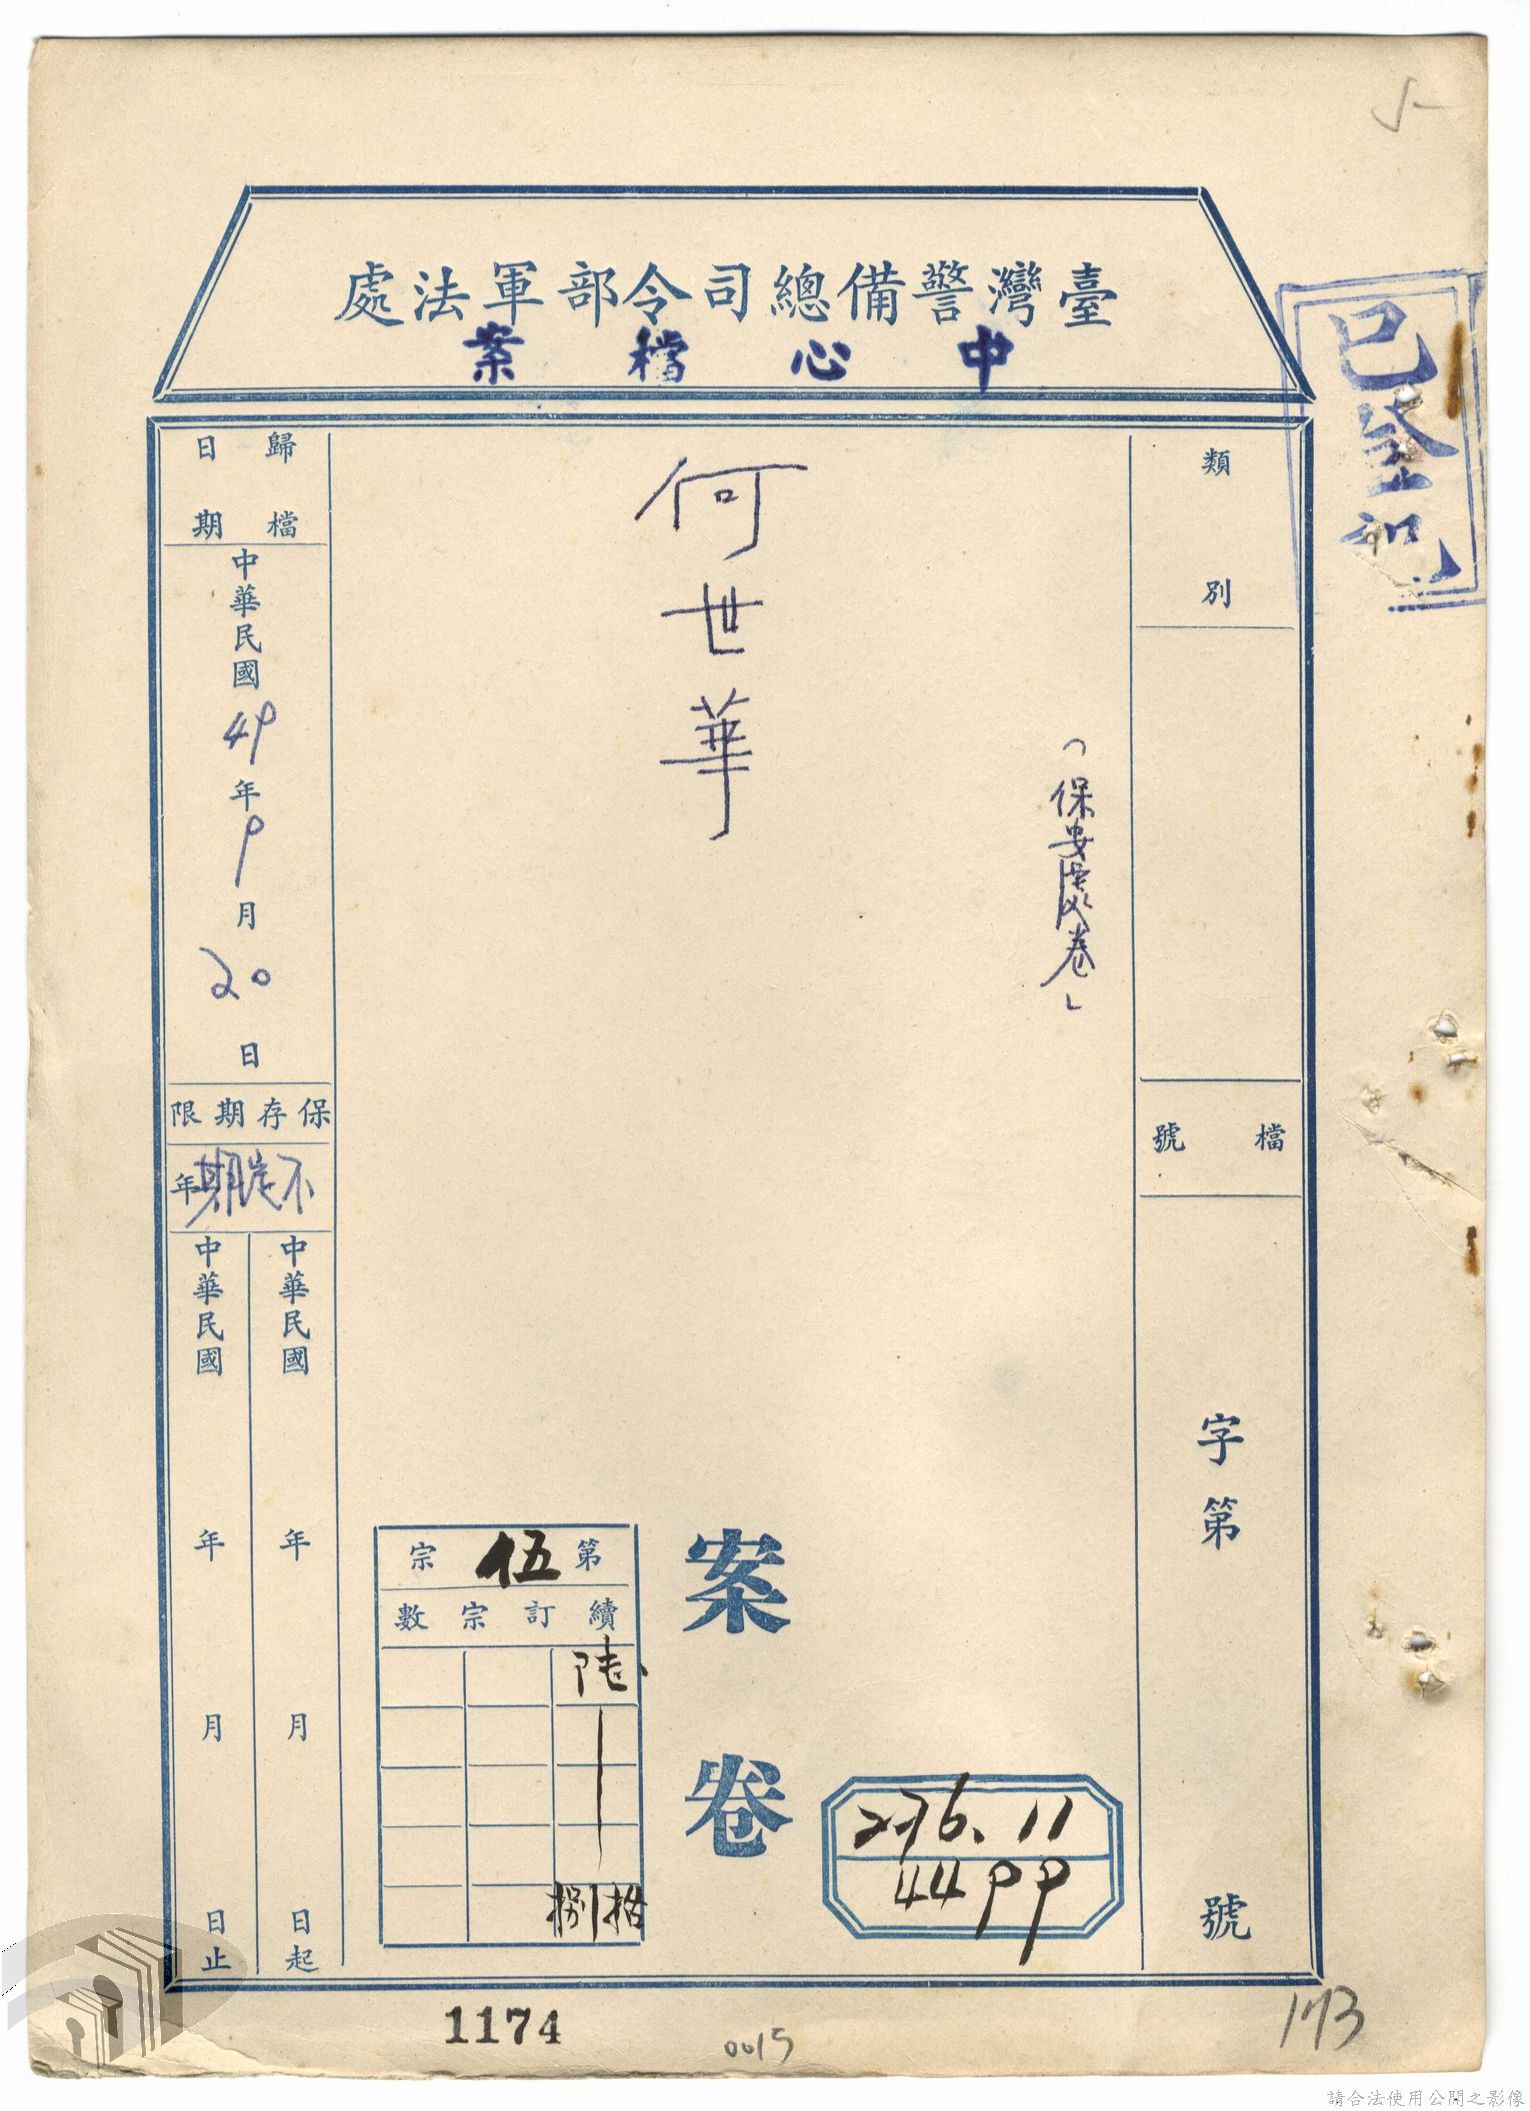 臺灣警備總司令部軍法處
中心檔案
已登記
類別
檔號
字第
號
(保安處卷)
何世華
案卷
276.11
4499
第伍宗
續訂宗數
陸
捌拾
歸檔日期
中華民國49年9月20日
保存期限
不定期年
中華民國 年 月 日起
中華民國 年 月 日止
1174
0015
173
請合法使用公開之影像